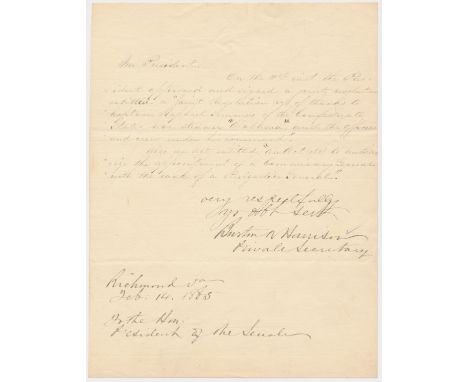 Mr President.
On the 11th inst the Pres-
ident approved and signed a joint resolution
entitled "Joint Resolution of thanks to
Captain Raphael Semmes of the Confederate
States war steamer "Alabama" and the officers
and crew under his command."
Also an act entitled "An Act to autho-
rize the appointment of a Commissary General
with the rank of a Brigadier General."
very respectfully
yr obt servt
Burton N Harrison
Private Secretary
Richmond Va
Feb. 14. 1865
To the Hon.
President of the Senate